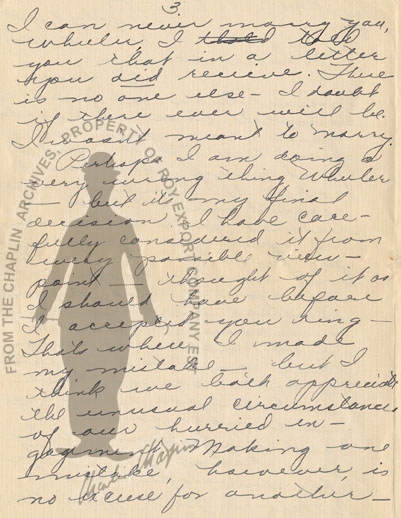 3.
I can never marry you,
Wheeler, I told
you that in a letter
you did recieve. There
is no one else – I doubt
if there ever will be.
I wasn't meant to marry.
Perhaps I am doing a
very wrong thing Wheeler
– but it's my final
decision. I have care-
fully considered it from
every possible view-
point – thought of it as
I should have before
I accepted you ring –
That's where I made
my mistake – but I
think we both appreciate
the unusual circumstances
of our hurried en-
gagement. Making one
mistake, however, is
no excuse for another –
FROM THE CHAPLIN ARCHIVES, PROPERTY OF ROY EXPORT COMPANY EST.